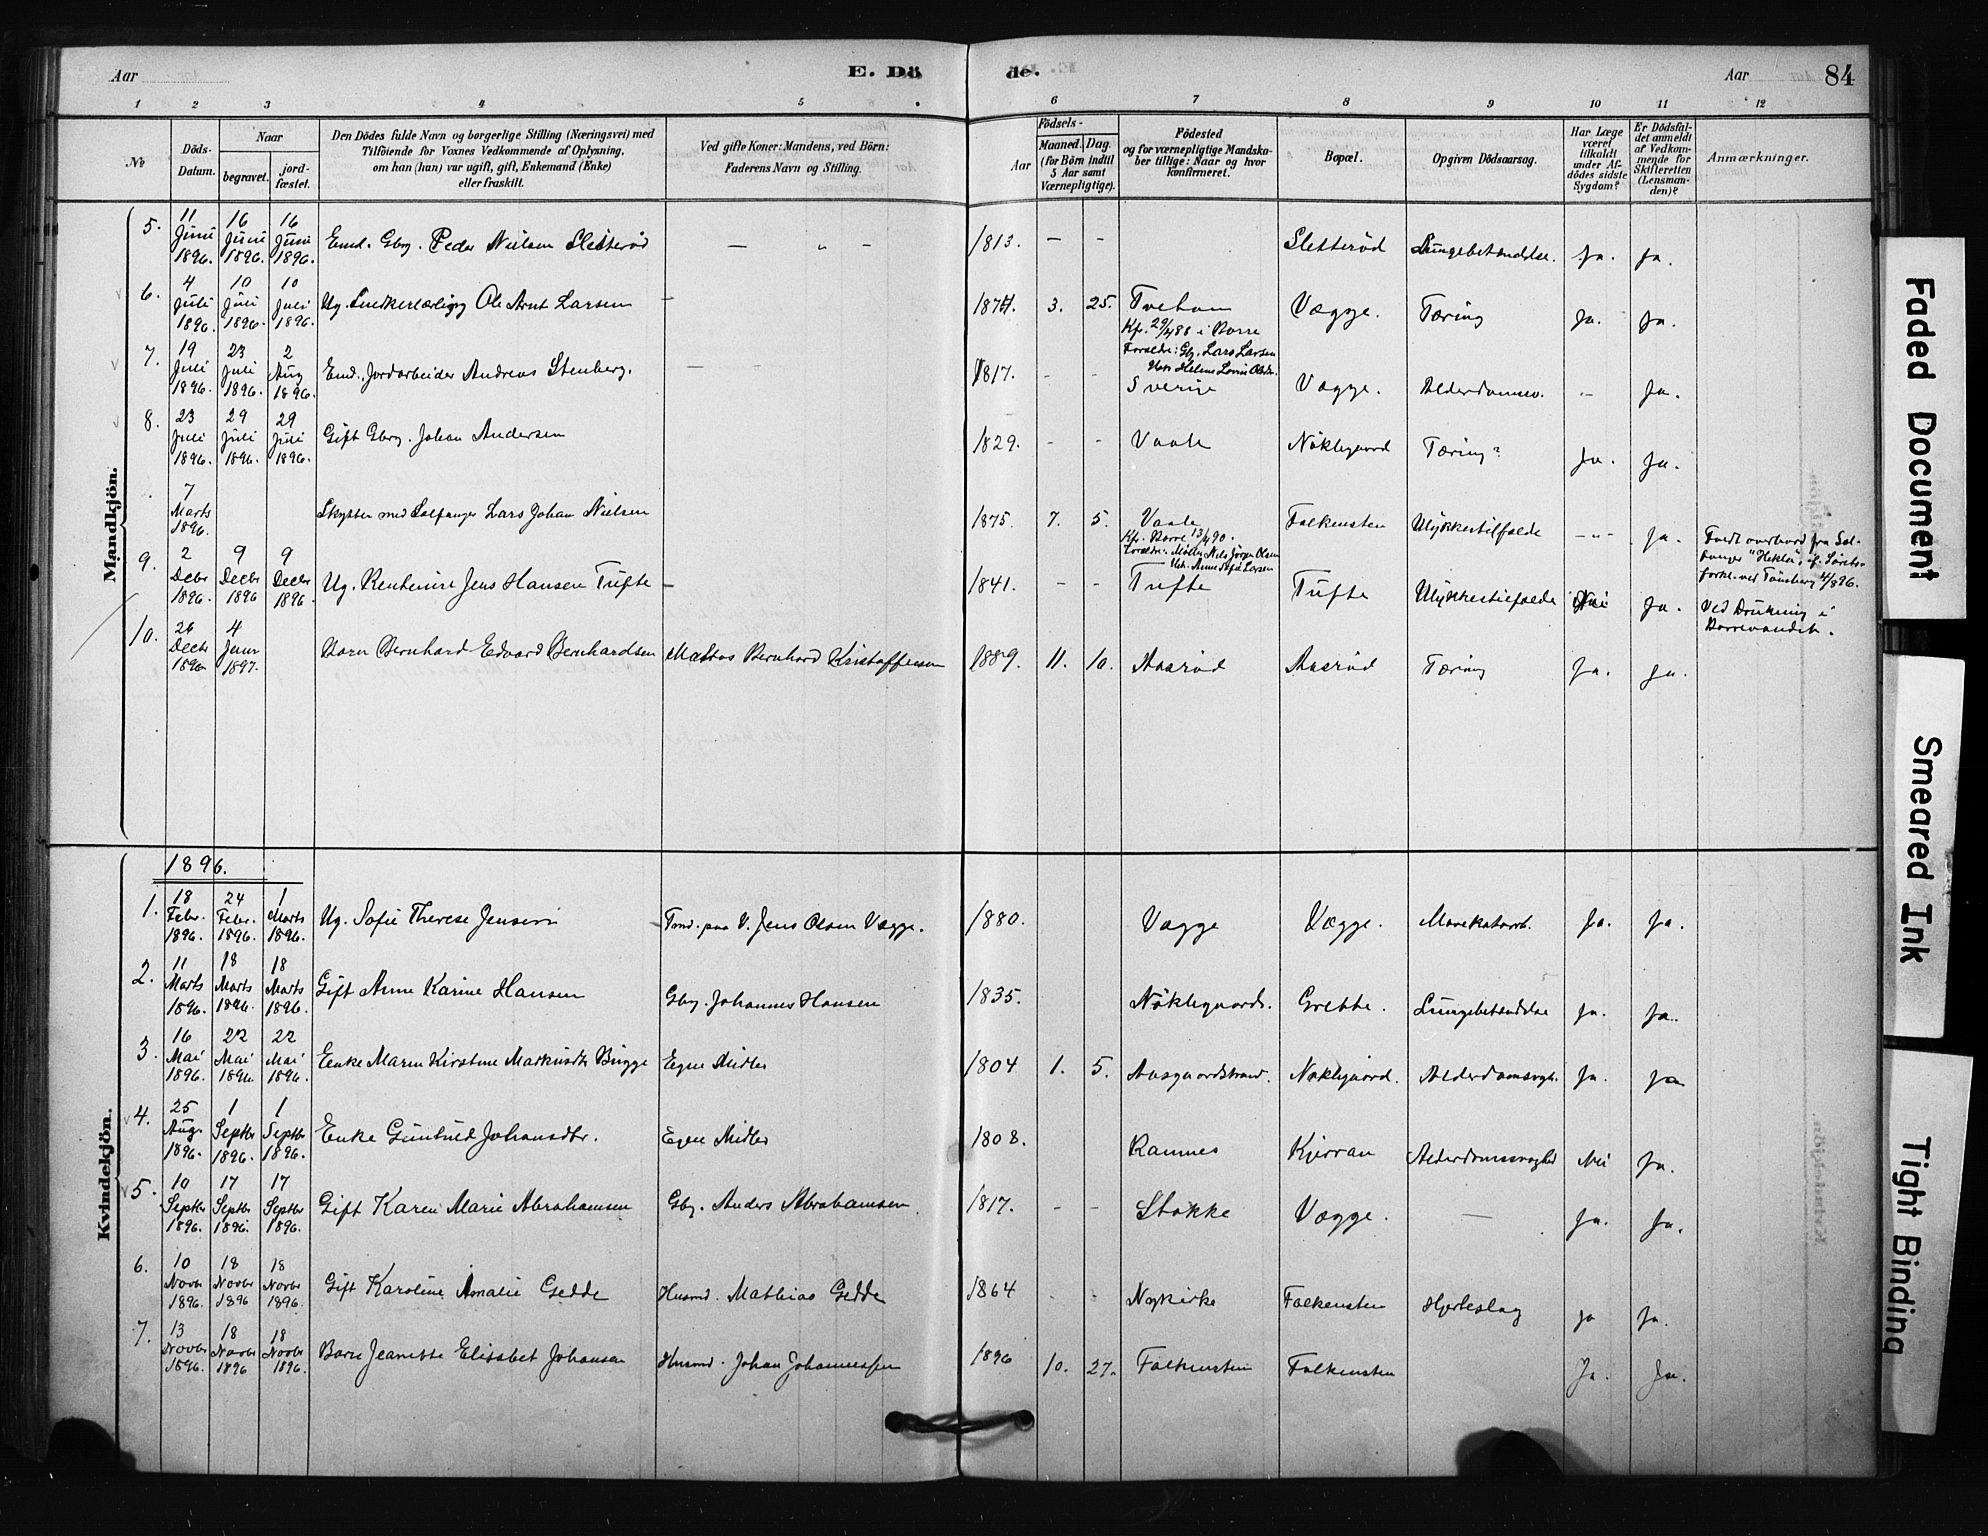 Aar E. Dö de. Aar 84
1 2 3 4 5 6 7 8 9 10 11 12
№
Döds-Datum.
Naar
begravet.
jord-fæstet.
Den Dödes fulde Navn og borgerlige Stilling (Næringsvei) med
Tilföiende for Voxnes Vedkommende af Oplysning,
om han (hun) var ugift, gift, Enkemand (Enke)
eller fraskilt.
Ved gifte Koner: Mandens, ved Börn:
Faderens Navn og Stilling.
Födsels-
Aar
Maaned. Dag.
(for Börn indtil
5 Aar samt
Værnepligtige).
Födested
og for værnepligtige Mandska-
ber tillige: Naar og hvor
konfirmeret.
Bopæl.
Opgiven Dödsaarsag.
Har Læge
været
tilkaldt
under Af-
dödes sidste
Sygdom?
Er Dödsfal-
det anmeldt
af Vedkom-
mende for
Skifteretten
(Lensman-
den)?
Anmærkninger.
Mandkjön.
5. 11 Juni 1896. 16 Juni 1896. 16 Juni 1896. Emd. Gbrg. Peder Nielsen Sletterød — " — 1813. — — Sletterød Lungebetændelse. Ja. Ja.
6. 4 Juli 1896. 10 Juli 1896. 10 Juli 1896. Ug. Snedkerlærling Ole Arnt Larsen — 1874. 3. 25. Tveten Vægge. Tæring Ja. Ja.
Kf. 29/4 88 i Borre
Forældre: Gbr. Lars Larsen
7. 19 Juli 1896. 23 Juli 1896. 2 Aug 1896. Emd. Jordarbeider Andreas Stenberg. — — 1817. - - Sverige Vægge. Alderdomssv. - Ja.
8. 23 Juli 1896. 29 Juli 1896. 29 Juli 1896. Gift Gbrg. Johan Andersen 1829. - - Vaale Nöklegaard Tæring? Ja. Ja.
7 Marts 1896. Skytter med Sælfanger Lars Johan Nielsen 1875. 7. 5. Vaale Falkensten Ulykkestilfælde -"- Ja. Faldt overbord fra Sæl-
fanger "Hekla",
Kf. Borre 13/4 90.
Forældre: Møller Nils Jörgen Olsen
9. 2 Decbr 1896. 9 Decbr 1896 9 Decbr 1896. Ug. Jens Hansen Tufte — 1841. - - Tufte Tufte Ulykkestilfælde Nei Ja. Ved Drukning i
Borrevandet.
10. 26 Decbr 1896 4 Janr 1897. Barn Bernhard Edvard Bernhardsen Matros Bernhard Kristoffersen 1889. 11. 10. Aasrød Aasrød Tæring Ja. Ja.
Kvindekjön.
1896.
1. 18 Febr. 1896. 24 Febr. 1896. 1 Marts 1896. Ug. Sofie Therese Jensen Tømd. paa V. Jens Olsen Vægge. 1880. Vægge Vægge. Mavekatarrh. Ja. Ja.
2. 11 Marts 1896. 18 Marts 1896. 18 Marts 1896. Gift Anne Karine Hansen Gbrg. Johannes Hansen 1835. Nöklegaard. Grette. Lungebetændelse Ja. Ja.
3. 16 Mai 1896. 22 Mai 1896. 22 Mai 1896. Enke Maren Kirstine Markusdtr Bugge Egne Midler 1804 1. 5. Aasgaardstrand. Nöklegaard. Alderdomssvagh. Ja. Ja
4. 25 Aug. 1896. 1 Septbr 1896. 1 Septbr 1896. Enke Gunhild Johansdtr. Egne Midler 1808. Ramnes Kjærran Alderdomssvaghed Nei Ja.
5. 10 Septbr 1896. 17 Septbr 1896. 17 Septbr 1896. Gift Karen Marie Abrahamsen Gbrg. Anders Abrahamsen. 1817. - - Stokke Vægge. — Ja. Ja.
6. 10 Novbr 1896. 18 Novbr 1896 18 Novbr 1896. Gift Karoline Amalie Gedde Husmd. Mathias Gedde 1864 - - Nykirke Falkensten Hjerteslag Ja Ja.
7. 13 Novbr 1896. 18 Novbr 1896 18 Novbr 1896. Barn Jeanette Elisabet Johansen Husmd. Johan Johannessen 1896 10. 27. Falkensten Falkensten Ja. Ja.
Faded Document
Smeared Ink
Tight Binding